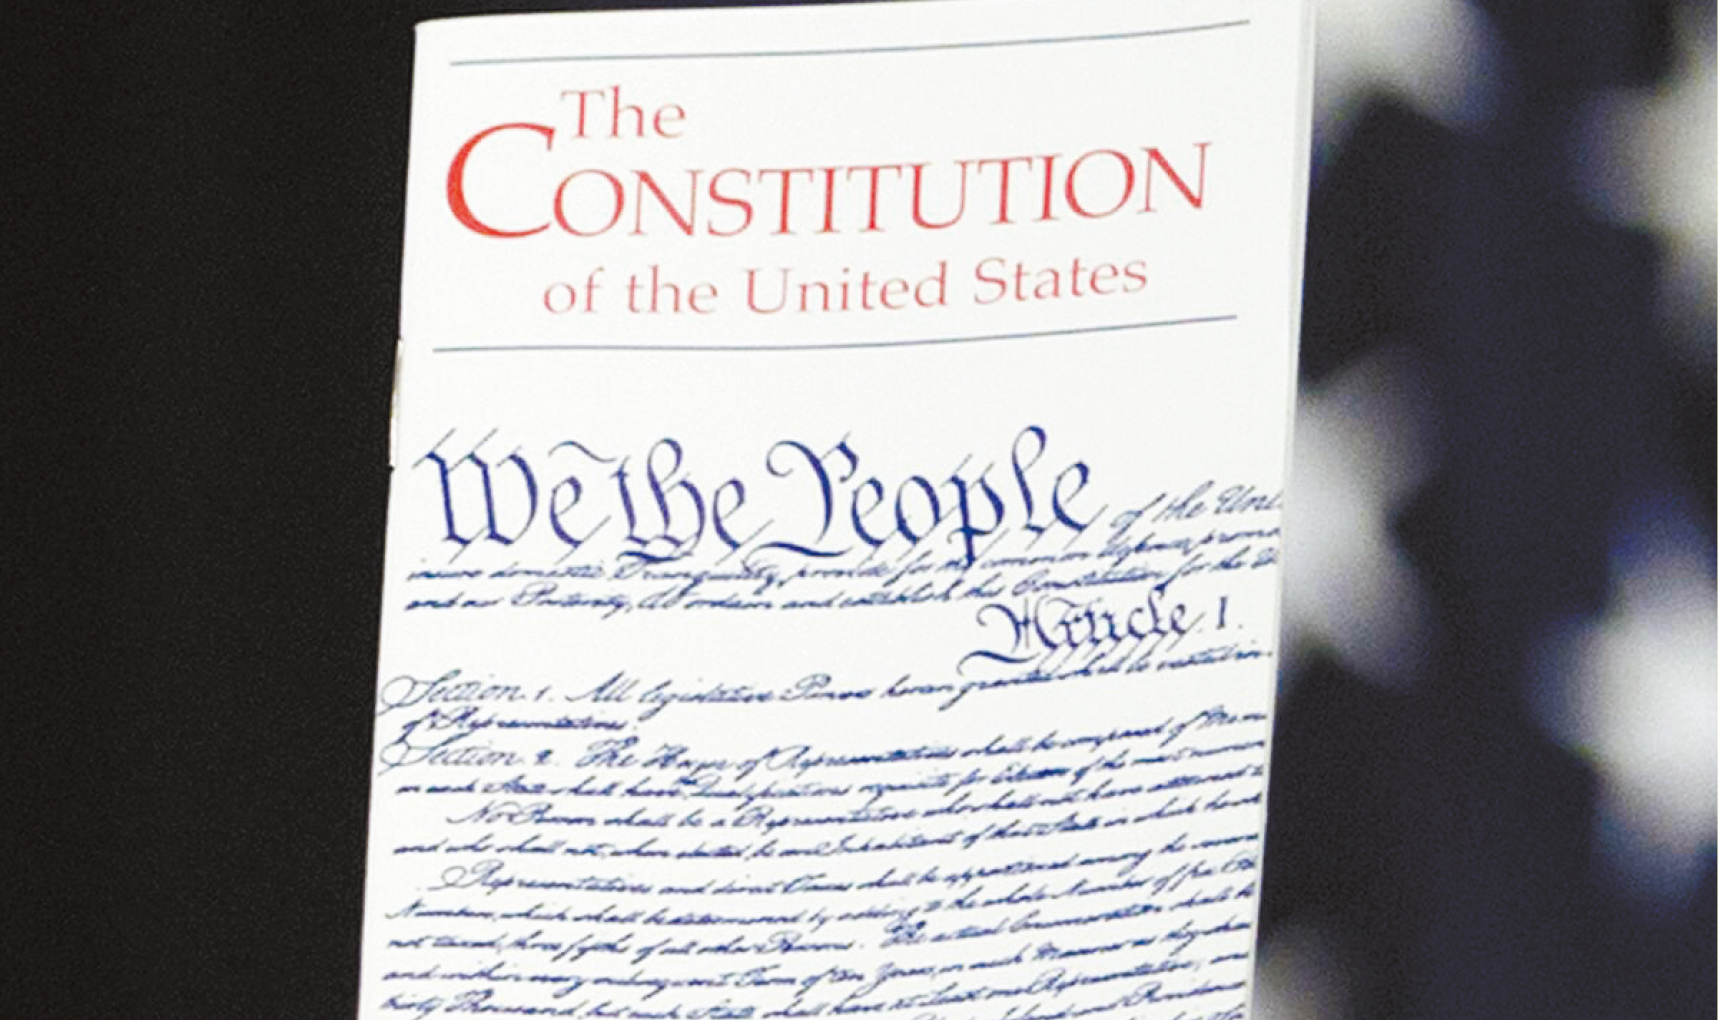 The
CONSTITUTION
of the United States
We the People of the Uni
insure domestic Tranquility, provide for the common defence, promo
and our Posterity, do ordain and establish this Constitution for the U
Article. I.
Section. 1. All legislative Powers herein granted shall be vested in
of Representatives.
Section. 2. The House of Representatives shall be composed of Mem
in each State shall have the Qualifications requisite for Electors of the most numer
No Person shall be a Representative who shall not have attained t
and who shall not, when elected, be an Inhabitant of that State in which he
Representatives and direct Taxes shall be apportioned among the
Number, which shall be determined by adding to the whole Number of free
not taxed, three fifths of all other Persons. The actual Enumeration shall b
and within every subsequent Term of ten Years, in such Manner as they shall
thirty Thousand, but each State shall have at Least one Representative; and